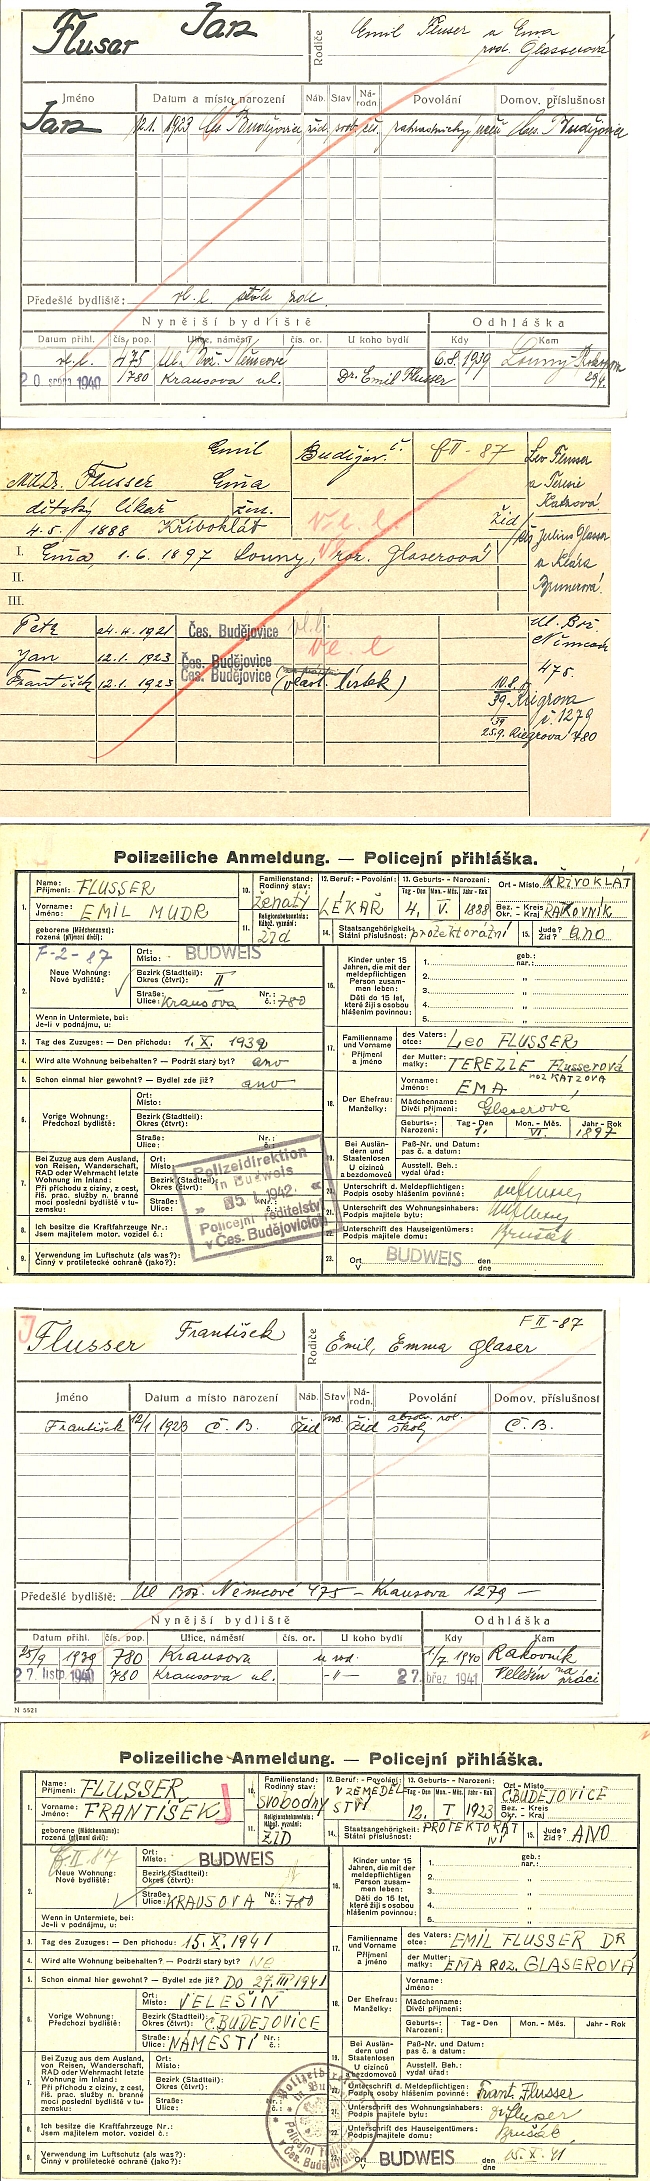 Flusser Jan
Rodiče
Emil Flusser a Ema
roz. Glasserová
Jméno Datum a místo narození Náb. Stav Národn. Povolání Domov. příslušnost
Jan 12.1. 1923 Čes. Budějovice žid. svob. zahradnický Čes. Budějovice
Předešlé bydliště:
Nynější bydliště Odhláška
Datum přihl. čís. pop. Ulice, náměstí čís. or. U koho bydlí Kdy Kam
vl. l. 475 Ul. Bož. Němcové 6.8. 1939 Louny
20. srpna 1940 1780 Krausova ul. Dr. Emil Flusser
Emil Budějov. Č. F II - 87
MUDr. Flusser Ema
dětský lékař žen.
4. 5. 1888 Křivoklát žid
Leo Flusser
a Terezie
Katzová
Julius Glasser
a Klára
I. Ema, 1. 6. 1897 Louny, roz. Glaserová
II.
III.
Petr 24. 4. 1921 Čes. Budějovice vl. l.
Jan 12.1. 1923 Čes. Budějovice vl. l
František 12.1. 1923 Čes. Budějovice (vlast. lístek)
Ul. Bož.
Němcové
475.
10.8.
39 Krigrova
č. 1279
25.9. Riegrova 780
Polizeiliche Anmeldung. — Policejní přihláška.
1. Name: Příjmení: FLUSSER
Vorname: Jméno: EMIL MUDR
geborene (Mädchenname): rozená (příjmení dívčí):
10. Familienstand: Rodinný stav: ženatý
11. Religionsbekenntnis: Nábož. vyznání: žid
12. Beruf: - Povolání: LÉKAŘ
13. Geburts- - Narození: Tag - Den Mon. - Měs. Jahr - Rok
4. V. 1888
Ort - Místo KŘIVOKLÁT
Bez. - Kreis Okr. - Kraj RAKOVNÍK
14. Staatsangehörigkeit: Státní příslušnost: protektorátní
15. Jude? Žid? ano
F-2-87
2. Neue Wohnung: Nové bydliště:
Ort: Místo: BUDWEIS
Bezirk (Stadtteil): Okres (čtvrť): II
Straße: Ulice: Krausova Nr.: č.: 780
Wenn in Untermiete, bei: Je-li v podnájmu, u:
3. Tag des Zuzuges: — Den příchodu: 1. X. 1939
4. Wird alte Wohnung beibehalten? — Podrží starý byt? ano
5. Schon einmal hier gewohnt? — Bydlel zde již? ano
6. Vorige Wohnung: Předchozí bydliště:
Ort: Místo:
Bezirk (Stadtteil): Okres (čtvrť):
Straße: Ulice: Nr.: č.:
7. Bei Zuzug aus dem Ausland, von Reisen, Wanderschaft, RAD oder Wehrmacht letzte Wohnung im Inland:
Při příchodu z ciziny, z cest, říš. prac. služby n. branné moci poslední bydliště v tuzemsku:
Ort: Místo:
Bezirk (Stadtteil): Okres (čtvrť):
Straße: Ulice:
Polizeidirektion
in Budweis
Policejní ředitelství
v Čes. Budějovicích
8. Ich besitze die Kraftfahrzeuge Nr.: Jsem majitelem motor. vozidel č.:
9. Verwendung im Luftschutz (als was?): Činný v protiletecké ochraně (jako?):
16. Kinder unter 15 Jahren, die mit der meldepflichtigen Person zusammen leben:
Děti do 15 let, které žijí s osobou hlášením povinnou:
1. geb.: nar.:
2.
3.
4.
5.
17. Familienname und Vorname Příjmení a jméno
des Vaters: otce: Leo FLUSSER
der Mutter: matky: TEREZIE Flusserová
roz KATZOVÁ
18. Der Ehefrau: Manželky:
Vorname: Jméno: EMA
Mädchenname: Dívčí příjmení: Glaserová
Geburts-: Narození: Tag - Den 1. Mon. - Měs. VI. Jahr - Rok 1897
19. Bei Ausländern und Staatenlosen U cizinců a bezdomovců
Paß-Nr. und Datum: pas č. a datum:
Ausstell. Beh.: vydal úřad:
20. Unterschrift d. Meldepflichtigen: Podpis osoby hlášením povinné:
21. Unterschrift des Wohnungsinhabers: Podpis majitele bytu:
22. Unterschrift des Hauseigentümers: Podpis majitele domu: Brušák
23. Ort V BUDWEIS den dne
J
Flusser František
Rodiče
Emil, Emma Glaser
F II - 87
Jméno Datum a místo narození Náb. Stav Národn. Povolání Domov. příslušnost
František 12/1 1923 Č. B. žid svob. žid absolv. rol. školy Č. B.
Předešlé bydliště: Ul Bož. Němcové 475 — Krausova 1279 —
Nynější bydliště Odhláška
Datum přihl. čís. pop. Ulice, náměstí čís. or. U koho bydlí Kdy Kam
25/9 1939 780 Krausova u rod. 1/7 1940 Rakovník
27. listp. 1940 780 Krausova ul. -"- 27. břez. 1941 Velešín na práci
N 5521
Polizeiliche Anmeldung. — Policejní přihláška.
1. Name: Příjmení: FLUSSER
Vorname: Jméno: FRANTIŠEK J
geborene (Mädchenname): rozená (příjmení dívčí):
10. Familienstand: Rodinný stav: svobodný
11. Religionsbekenntnis: Nábož. vyznání: ŽID
12. Beruf: - Povolání: V ZEMĚDĚLSTVÍ
13. Geburts- - Narození: Tag - Den Mon. - Měs. Jahr - Rok
12. I 1923
Ort - Místo Č.BUDĚJOVICE
Bez. - Kreis Okr. - Kraj
14. Staatsangehörigkeit: Státní příslušnost: PROTEKTORÁTNÍ
15. Jude? Žid? ANO
F. II. 87
2. Neue Wohnung: Nové bydliště:
Ort: Místo: BUDWEIS
Bezirk (Stadtteil): Okres (čtvrť):
Straße: Ulice: KRAUSOVA Nr.: č.: 780
Wenn in Untermiete, bei: Je-li v podnájmu, u:
3. Tag des Zuzuges: — Den příchodu: 15. X. 1941
4. Wird alte Wohnung beibehalten? — Podrží starý byt? Ne
5. Schon einmal hier gewohnt? — Bydlel zde již? DO 27. III 1941
6. Vorige Wohnung: Předchozí bydliště:
Ort: Místo: VELEŠÍN
Bezirk (Stadtteil): Okres (čtvrť): Č.BUDĚJOVICE
Straße: Ulice: NÁMĚSTÍ Nr.: č.:
7. Bei Zuzug aus dem Ausland, von Reisen, Wanderschaft, RAD oder Wehrmacht letzte Wohnung im Inland:
Při příchodu z ciziny, z cest, říš. prac. služby n. branné moci poslední bydliště v tuzemsku:
Ort: Místo:
Bezirk (Stadtteil): Okres (čtvrť):
Straße: Ulice:
8. Ich besitze die Kraftfahrzeuge Nr.: Jsem majitelem motor. vozidel č.:
9. Verwendung im Luftschutz (als was?): Činný v protiletecké ochraně (jako?):
16. Kinder unter 15 Jahren, die mit der meldepflichtigen Person zusammen leben:
Děti do 15 let, které žijí s osobou hlášením povinnou:
1. geb.: nar.:
2.
3.
4.
5.
17. Familienname und Vorname Příjmení a jméno
des Vaters: otce: EMIL FLUSSER DR
der Mutter: matky: EMA ROZ. GLASEROVÁ
18. Der Ehefrau: Manželky:
Vorname: Jméno:
Mädchenname: Dívčí příjmení:
Geburts-: Narození: Tag - Den Mon. - Měs. Jahr - Rok
19. Bei Ausländern und Staatenlosen U cizinců a bezdomovců
Paß-Nr. und Datum: pas č. a datum:
Ausstell. Beh.: vydal úřad:
Unterschrift d. Meldepflichtigen: Podpis osoby hlášením povinné: Frant. Flusser
21. Unterschrift des Wohnungsinhabers: Podpis majitele bytu: Flusser
Unterschrift des Hauseigentümers: Podpis majitele domu: Brušák
Ort V BUDWEIS den dne 15. X. 41